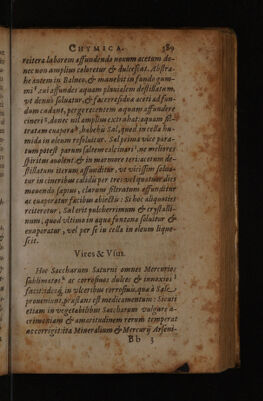 CHYMICA. 589
reitera laborem affundendo nouum acetum do-
nec non amplius coloretur & dulcescas. Abstra-
he autem in Balneo, & manebit in fundo gum-
mi, cui affundes aquam pluuialem destillatam,
vt denuò soluatur, & faces residua aceti ad fun-
dum cadant, perge recentem aquam affundere
cineri, donec nil amplius extrahat: aquam fil-
tratam euapora, habebis Sal, quod in cella hu-
mida in oleum resoluitur. Sal
in marmore teri: acetum de-
stillatum iterum affunditur, vt vicissim solua-
tur in cineribus calidis per tres vel quatuor dies
mouendo sæpius, clarum filtratum affunditur
ac euaporatur fæcibus abiectis: Si hoc aliquoties
reiteretur, Sal erit pulcherrimum & crystalli-
num, quod vltimo in aqua fontana soluitur &
euaporatur, vel per se in cella in oleum lique-
scit.
Vires & Vsus.
Hoc Saccharum Saturni omnes Mercurios
sublimatos ac corrosiuos dulces & innoxios
facit: ideoq; in vlceribus corrosiuis, quæ à Sale
proueniunt, præstans est medicamentum: Sicuti
etiam in vegetabilibus Saccharum vulgare a-
crimoniam & amaritudinem rerum temperat
ac corrigit: ita Mineralium & Mercurij Arseni-
Bb 3